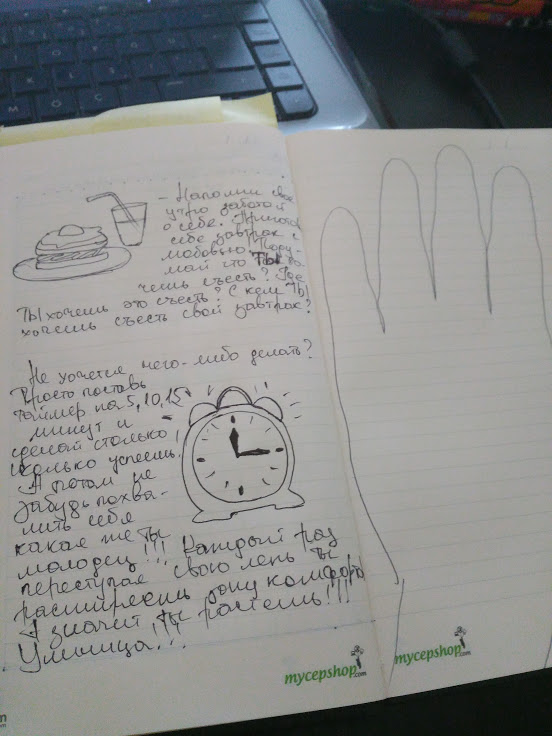 - Наполни свое
утро заботой
о себе. Приготовь
себе завтрак с
любовью. Поду-
май что ты хо-
чешь съесть? Где
ты хочешь это съесть? С кем ты
хочешь съесть свой завтрак?
Не хочется чего-либо делать?
Просто поставь
таймер на 5, 10, 15
минут и
сделай столько,
сколько успеешь.
А потом не
забудь похва-
лить себя
какая же ты
молодец!!! Каждый раз
переступая свою лень ты
расширяешь зону комфорта
А значит ты растешь!!!
Умница!!!
mycepshop.com
mycepshop.com